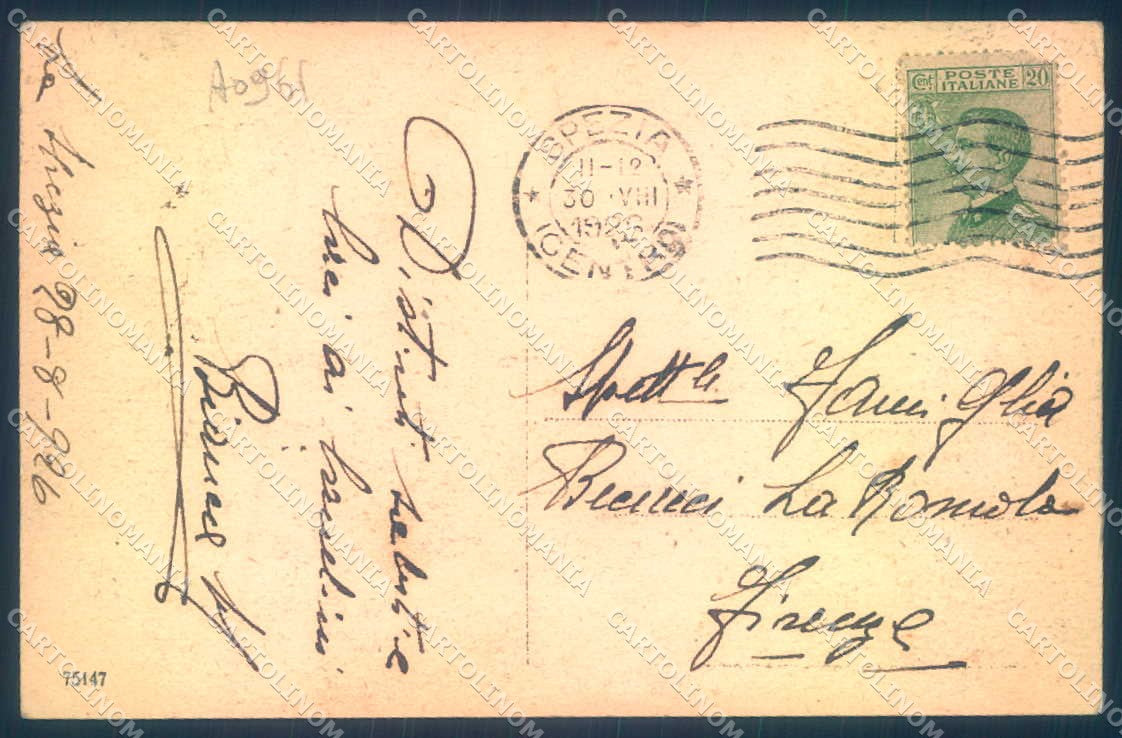 La Spezia 28-8-926
Distinti saluti e
baci ai piccolini
SPEZIA
11-12
30 VIII
1926
CENTRO
Cent POSTE 20
ITALIANE
Spett.le Famiglia
La Romola
Firenze
75147
CARTOLINOMANIA